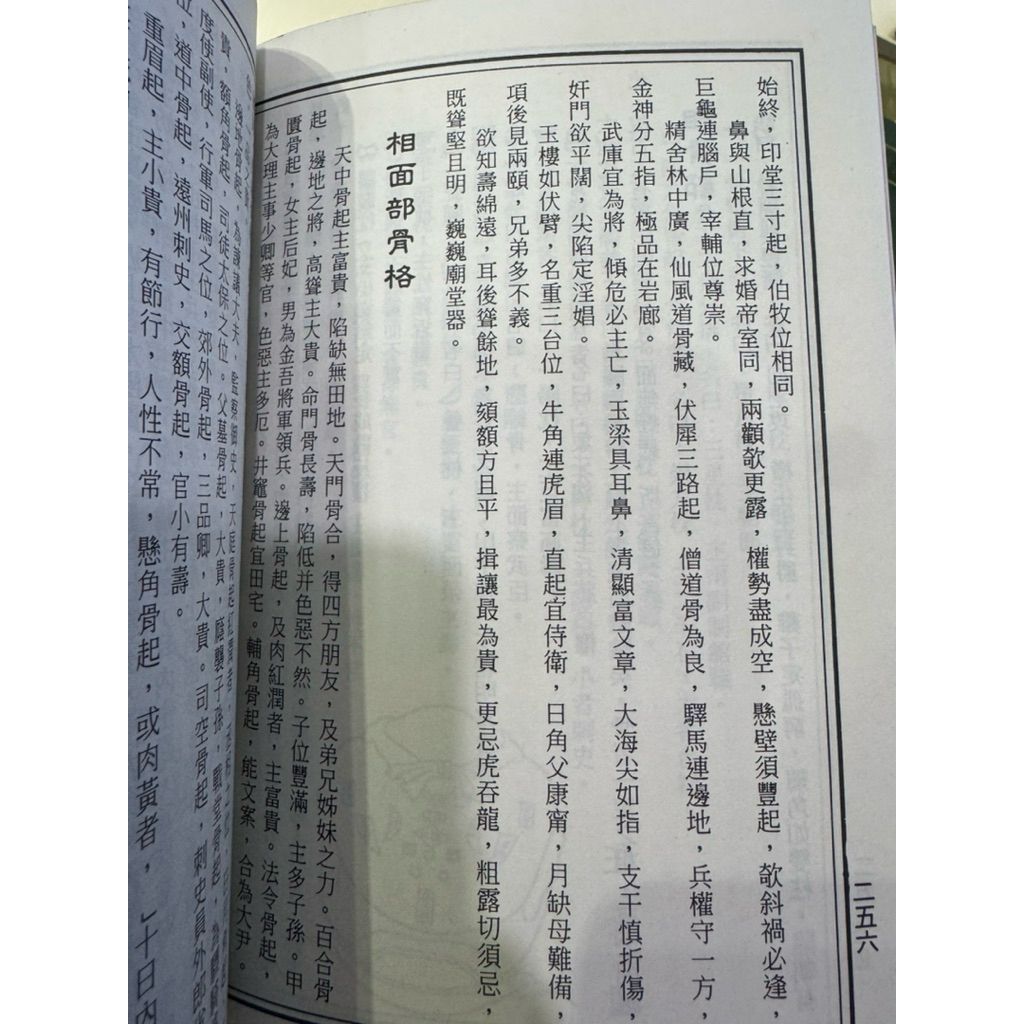 始終，印堂三寸起，伯牧位相同。
鼻與山根直，求婚帝室同，兩顴欹更露，權勢盡成空，懸壁須豐起，欹斜禍必逢，
巨龜連腦戶，宰輔位尊崇。
精舍林中廣，仙風道骨藏，伏犀三路起，僧道骨為良，驛馬連邊地，兵權守一方，
金神分五指，極品在岩廊。
武庫宜為將，傾危必主亡，玉梁具耳鼻，清顯富文章，大海尖如指，支干慎折傷，
奸門欲平闊，尖陷定淫娼。
玉樓如伏臂，名重三台位，牛角連虎眉，直起宜侍衛，日角父康甯，月缺母難備，
項後見兩頤，兄弟多不義。
欲知壽綿遠，耳後聳餘地，頦額方且平，揖讓最為貴，更忌虎吞龍，粗露切須忌，
既聳堅且明，巍巍廟堂器。
相面部骨格
天中骨起主富貴，陷缺無田地。天門骨合，得四方朋友，及弟兄姊妹之力。百合骨
起，邊地之將，高聳主大貴。命門骨長壽，陷低并色惡不然。子位豐滿，主多子孫。甲
匱骨起，女主后妃，男為金吾將軍領兵。邊上骨起，及肉紅潤者，主富貴。法令骨起，
為大理主事少卿等官，色惡主多厄。井竈骨起宜田宅。輔角骨起，能文案，合為大尹。
骨起，為諫議大夫，監察御史，天庭骨起紅潤者，
貴，額角骨起，司徒太保之位。父墓骨起，大貴，蔭襲子孫，戰堂骨起，
度使副使，行軍司馬之位，郊外骨起，三品卿，大貴。司空骨起，刺史員外郎
位，道中骨起，遠州刺史，交額骨起，官小有壽。
重眉起，主小貴，有節行，人性不常，懸角骨起，或肉黃者，
十日內
二五六